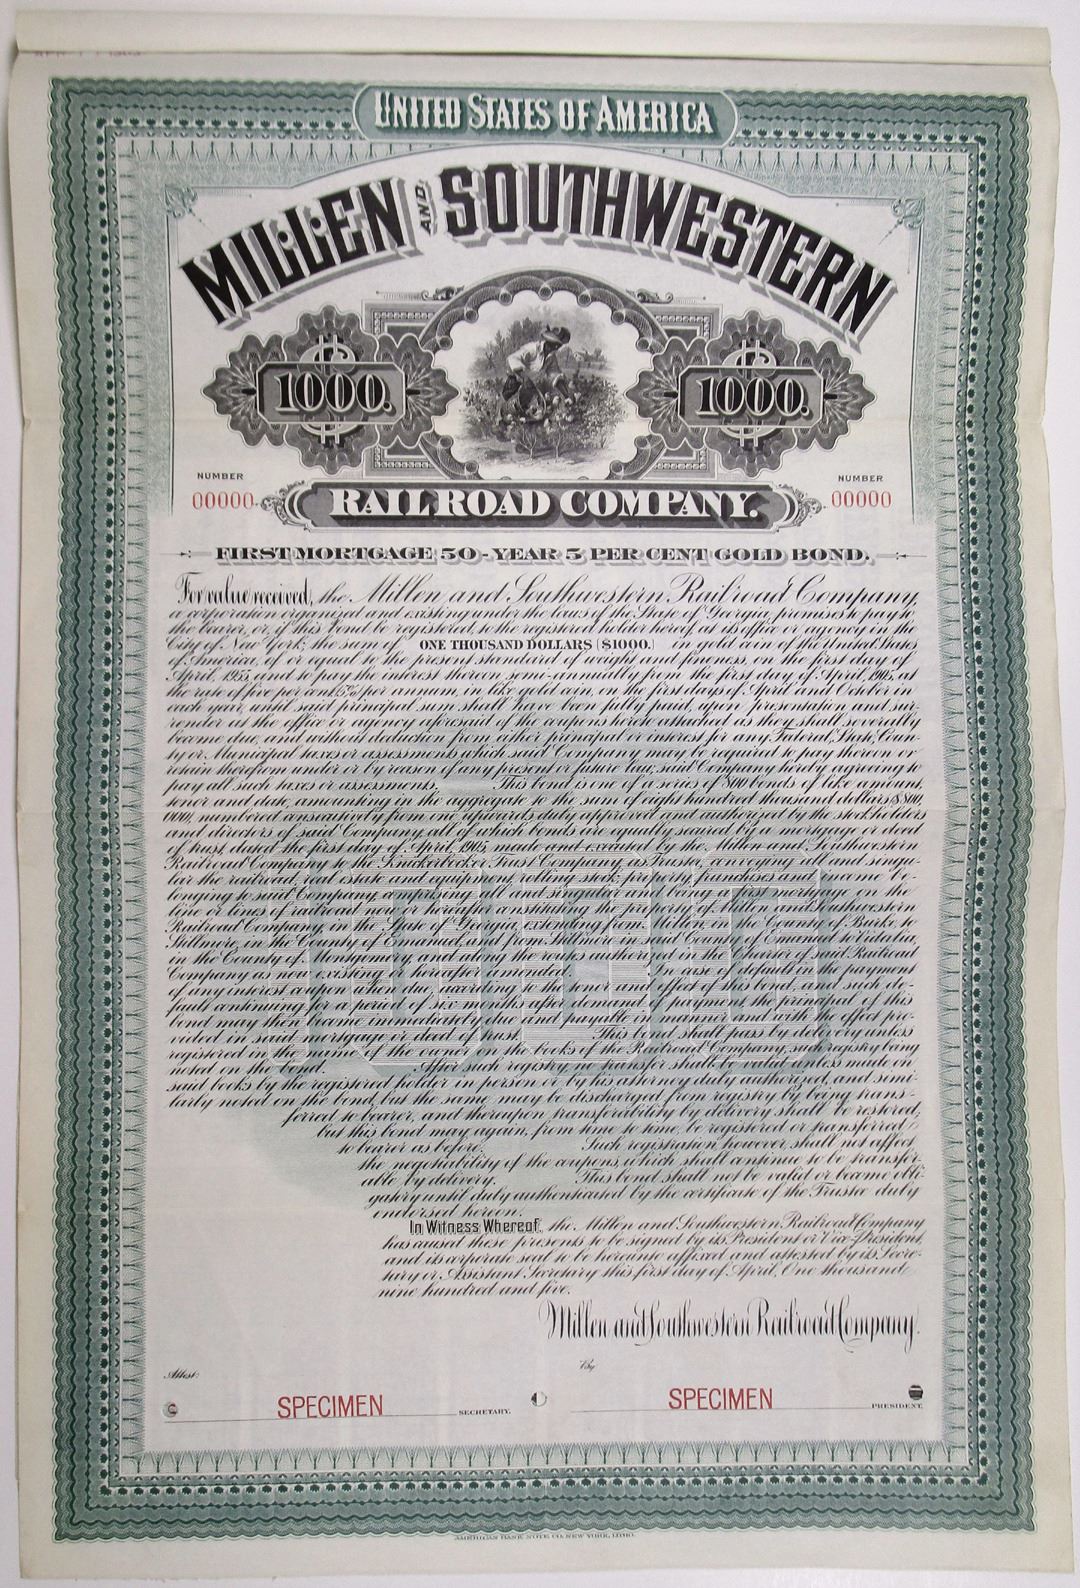 UNITED STATES OF AMERICA
MILLEN AND SOUTHWESTERN
$ 1000.
$ 1000.
NUMBER
00000
NUMBER
00000
RAILROAD COMPANY.
FIRST MORTGAGE 50-YEAR 5 PER CENT GOLD BOND.
For value received, the Millen and Southwestern Railroad Company,
a corporation organized and existing under the laws of the State of Georgia, promises to pay to
the bearer, or, if this bond be registered, to the registered holder hereof, at its office or agency in the
City of New York, the sum of ONE THOUSAND DOLLARS ($1000.) in gold coin of the United States
of America, of or equal to the present standard of weight and fineness, on the first day of
April, 1955, and to pay the interest thereon semi-annually from the first day of April, 1905, at
the rate of five per cent, 5% per annum, in like gold coin, on the first days of April and October in
each year, until said principal sum shall have been fully paid, upon presentation and sur-
render at the office or agency aforesaid of the coupons hereto attached as they shall severally
become due, and without deduction from either principal or interest for any Federal, State, Coun-
ty or Municipal taxes or assessments which said Company may be required to pay thereon or
retain therefrom under or by reason of any present or future law, said Company hereby agreeing to
pay all such taxes or assessments. This bond is one of a series of 800 bonds of like amount,
tenor and date, amounting in the aggregate to the sum of eight hundred thousand dollars, $800,
000, numbered consecutively from one upwards duly approved and authorized by the stockholders
and directors of said Company, all of which bonds are equally secured by a mortgage or deed
of trust, dated the first day of April, 1905, made and executed by the Millen and Southwestern
Railroad Company to the Knickerbocker Trust Company as Trustee, conveying all and singu-
lar the railroad, real estate and equipment, rolling stock, property, franchises and income be-
longing to said Company, comprising all and singular and being a first mortgage on the
line or lines of railroad now or hereafter constituting the property of Millen and Southwestern
Railroad Company, in the State of Georgia, extending from Millen, in the County of Burke to
Stillmore, in the County of Emanuel, and from Stillmore in said County of Emanuel to Vidalia,
in the County of Montgomery, and along the routes authorized in the Charter of said Railroad
Company as now existing or hereafter amended. In case of default in the payment
of any interest coupon when due, according to the tenor and effect of this bond, and such de-
fault continuing for a period of six months after demand of payment, the principal of this
bond may then become immediately due and payable in manner and with the effect pro-
vided in said mortgage or deed of trust. This bond shall pass by delivery unless
registered in the name of the owner on the books of the Railroad Company, such registry being
noted on the bond. After such registry, no transfer shall be valid unless made on
said books by the registered holder in person or by his attorney duly authorized, and simi-
larly noted on the bond, but the same may be discharged from registry by being trans-
ferred to bearer, and thereupon transferability by delivery shall be restored,
but this bond may again, from time to time, be registered or transferred
to bearer as before. Such registration however shall not affect
the negotiability of the coupons, which shall continue to be transfer-
able by delivery. This bond shall not be valid or become obli-
gatory until duly authenticated by the certificate of the Trustee duly
endorsed hereon.
In Witness Whereof, the Millen and Southwestern Railroad Company
has caused these presents to be signed by its President or Vice-President,
and its corporate seal to be hereunto affixed and attested by its Secre-
tary or Assistant Secretary this first day of April, One thousand
nine hundred and five.
Millen and Southwestern Railroad Company.
Attest:
By
SPECIMEN
SECRETARY.
SPECIMEN
PRESIDENT.
AMERICAN BANK NOTE CO. NEW YORK,